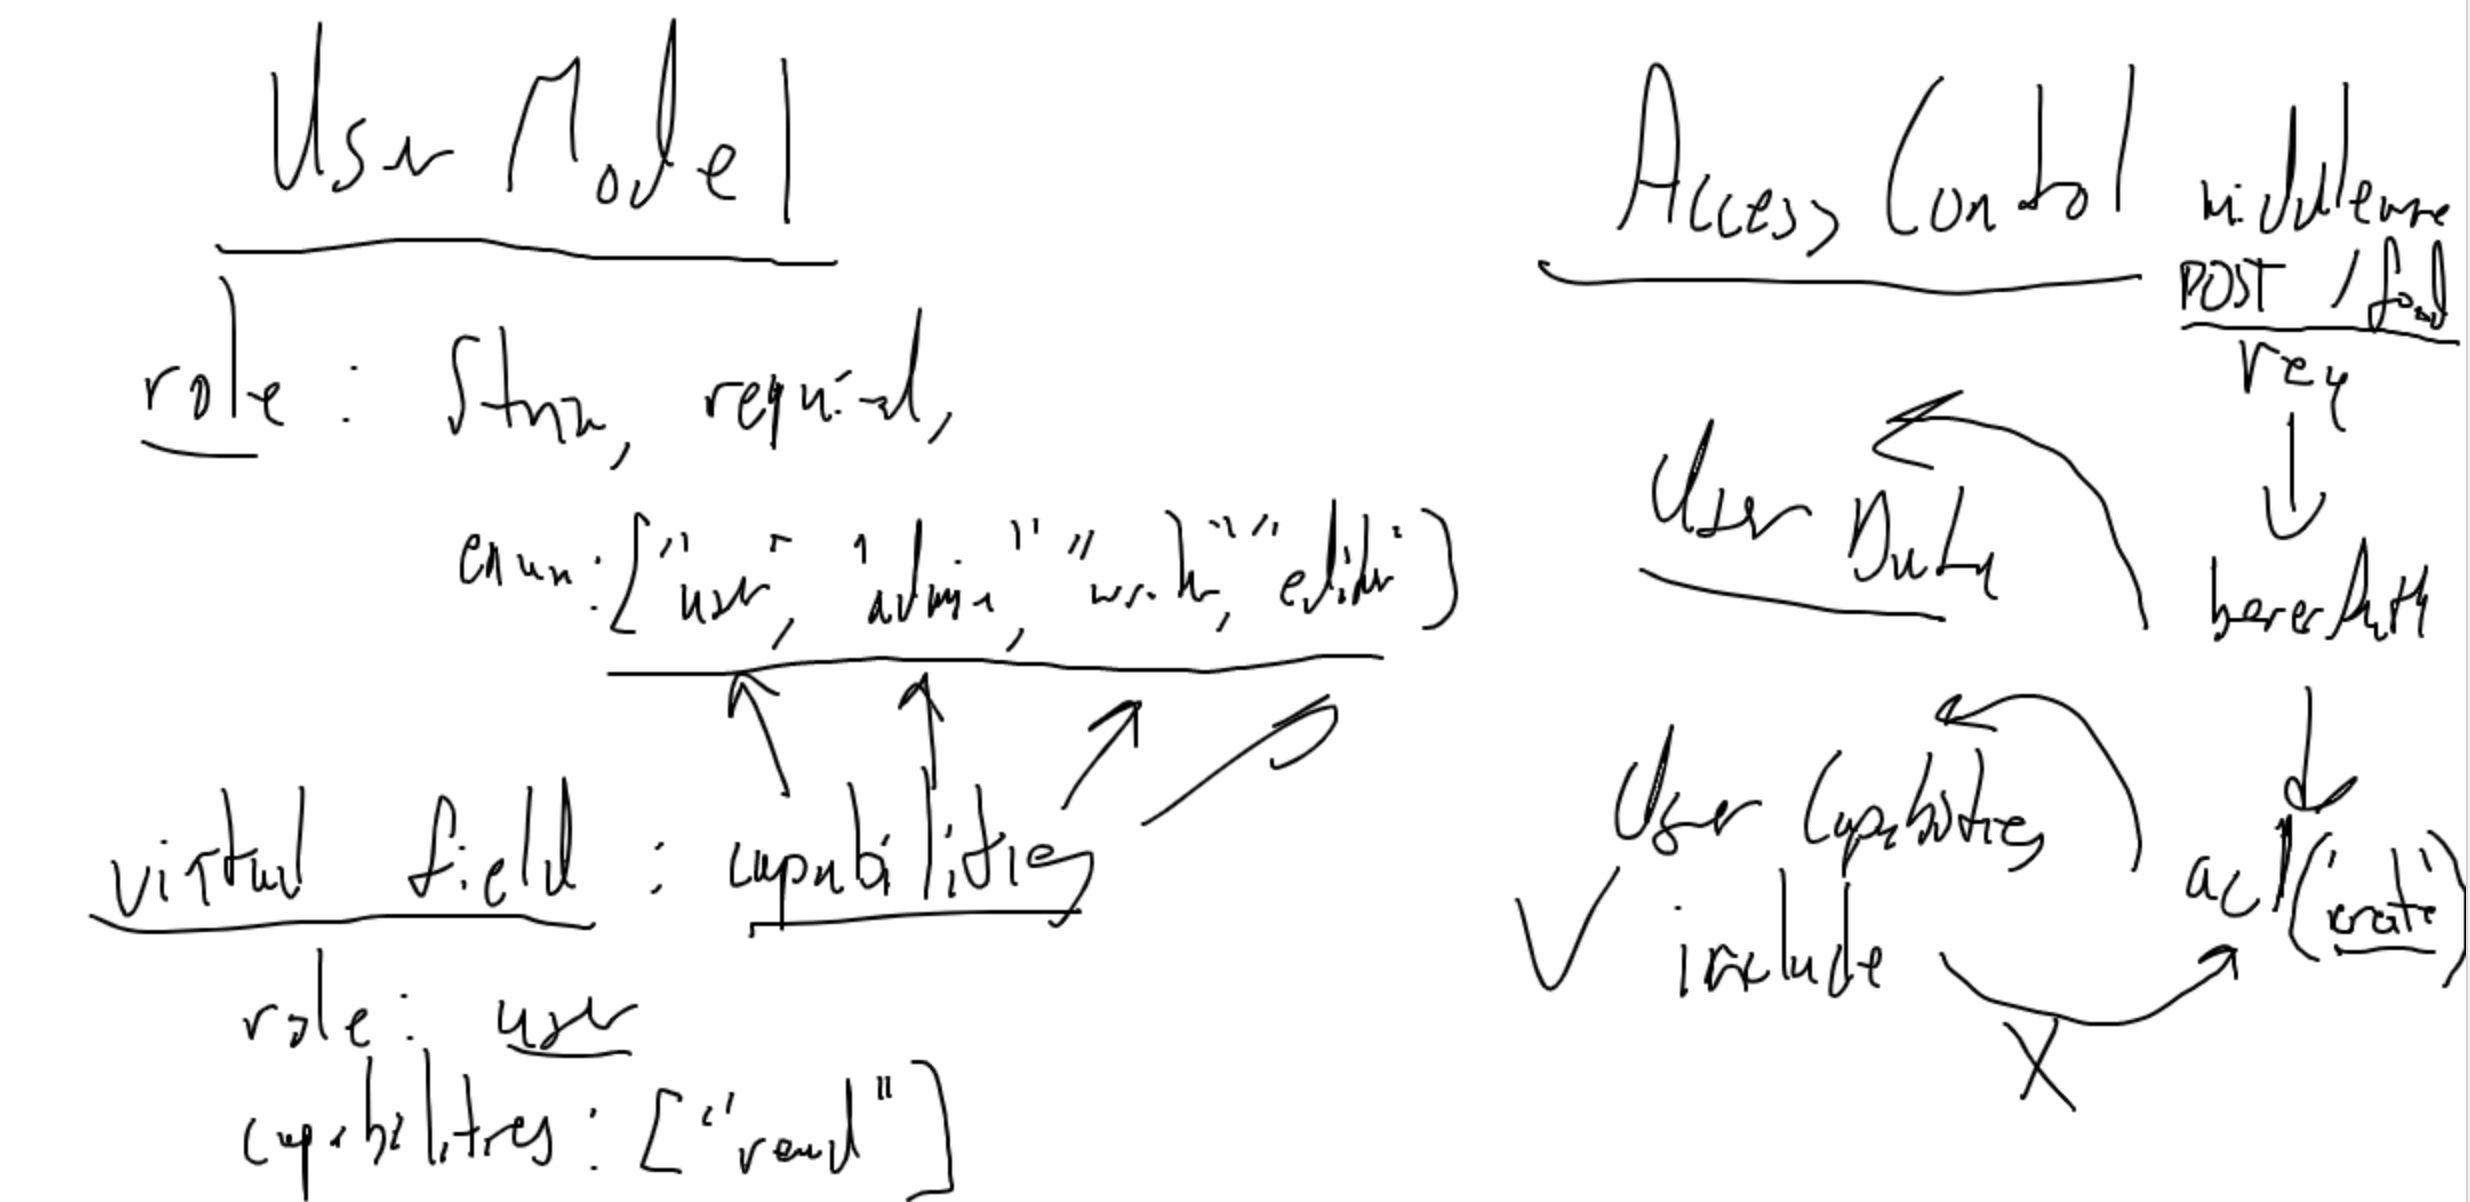 User Model
role : String, required,
enum: ["user", "admin", "writer", "editor"]
virtual field : capabilities
role: user
capabilities: ["read"]
Access Control middleware
POST /food
req
User Data
bererAuth
User Capabilities
acl("create")
include